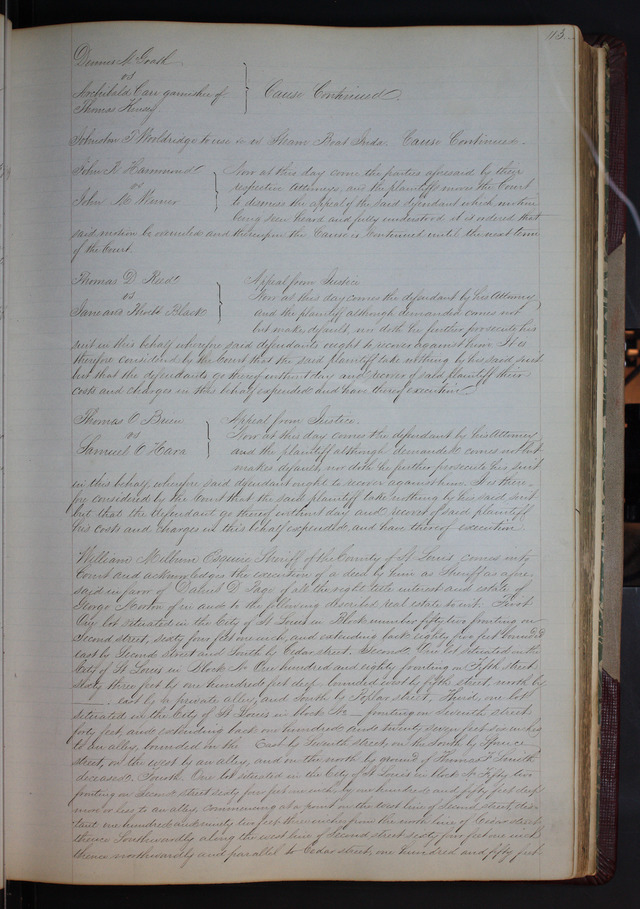 113.
Dennis McGrath
vs
Archibald Carr garnishee of
Thomas Kinsey
Cause Continued.
Johnston T Wooldridge to use &c vs Steam Boat Inda. Cause Continued.
John R Hammond
vs
John M Wimer
Now at this day come the parties aforesaid by their
respective Attorneys, and the plaintiff moves the Court
to dismiss the appeal of the said defendant which motion
being seen heard and fully understood it is ordered that
said motion be overruled and thereupon the Cause is Continued until the next term
of the Court.
Thomas D Reed
vs
Jane and Black
Appeal from Justice
Now at this day comes the defendant by his Attorney
and the plaintiff although demanded comes not
but makes default, nor doth he further prosecute his
suit in this behalf wherefore said defendants ought to recover against him It is
therefore considered by the Court that the said plaintiff take nothing by his said suit
but that the defendants go thereof without day and recover of said plaintiff their
costs and charges in this behalf expended and have thereof execution.
Thomas O Brien
vs
Samuel O Hara
Appeal from Justice.
Now at this day comes the defendant by his Attorney
and the plaintiff although demanded comes not but
makes default, nor doth he further prosecute his suit
in this behalf, wherefore said defendant ought to recover against him. It is there-
fore considered by the Court that the said plaintiff take nothing by his said suit
but that the defendant go thereof without day and recover of said plaintiff
his costs and charges in this behalf expended, and have thereof execution.
William Milburn Esquire Sheriff of the County of St Louis comes into
Court and acknowledges the execution of a deed by him as Sheriff as afore
said in favor of Daniel D Page of all the right title interest and estate of
George Morton of in and to the following described real estate to wit. First
One lot situated in the City of St Louis in Block number fifty two fronting on
Second street, sixty four feet one inch, and extending back eighty five feet bounded
east by Second street and South by Cedar street. Second, One lot situated in the
City of St Louis in Block No One hundred and eighty fronting on Fifth street
sixty three feet by one hundred feet deep bounded west by fifth street, north by
——— east by a private alley, and South by Poplar street, Third, one lot
situated in the City of St Louis in block No — fronting on Seventh street
forty feet, and extending back one hundred and twenty seven feet six inches
to an alley, bounded on the East by Seventh street, on the South by Spruce
street, on the west by an alley, and on the north by ground of Thomas Smith
deceased. Fourth. One lot situated in the City of St Louis in block No Fifty two
fronting on Second street sixty four feet one inch by one hundred and fifty feet deep
more or less to an alley, commencing at a point on the west line of Second street, dis-
tant one hundred and ninety two feet three inches from the north line of Cedar street
thence Southwardly along the west line of Second street sixty four feet one inch
thence northwardly and parallel to Cedar street, one hundred and fifty feet